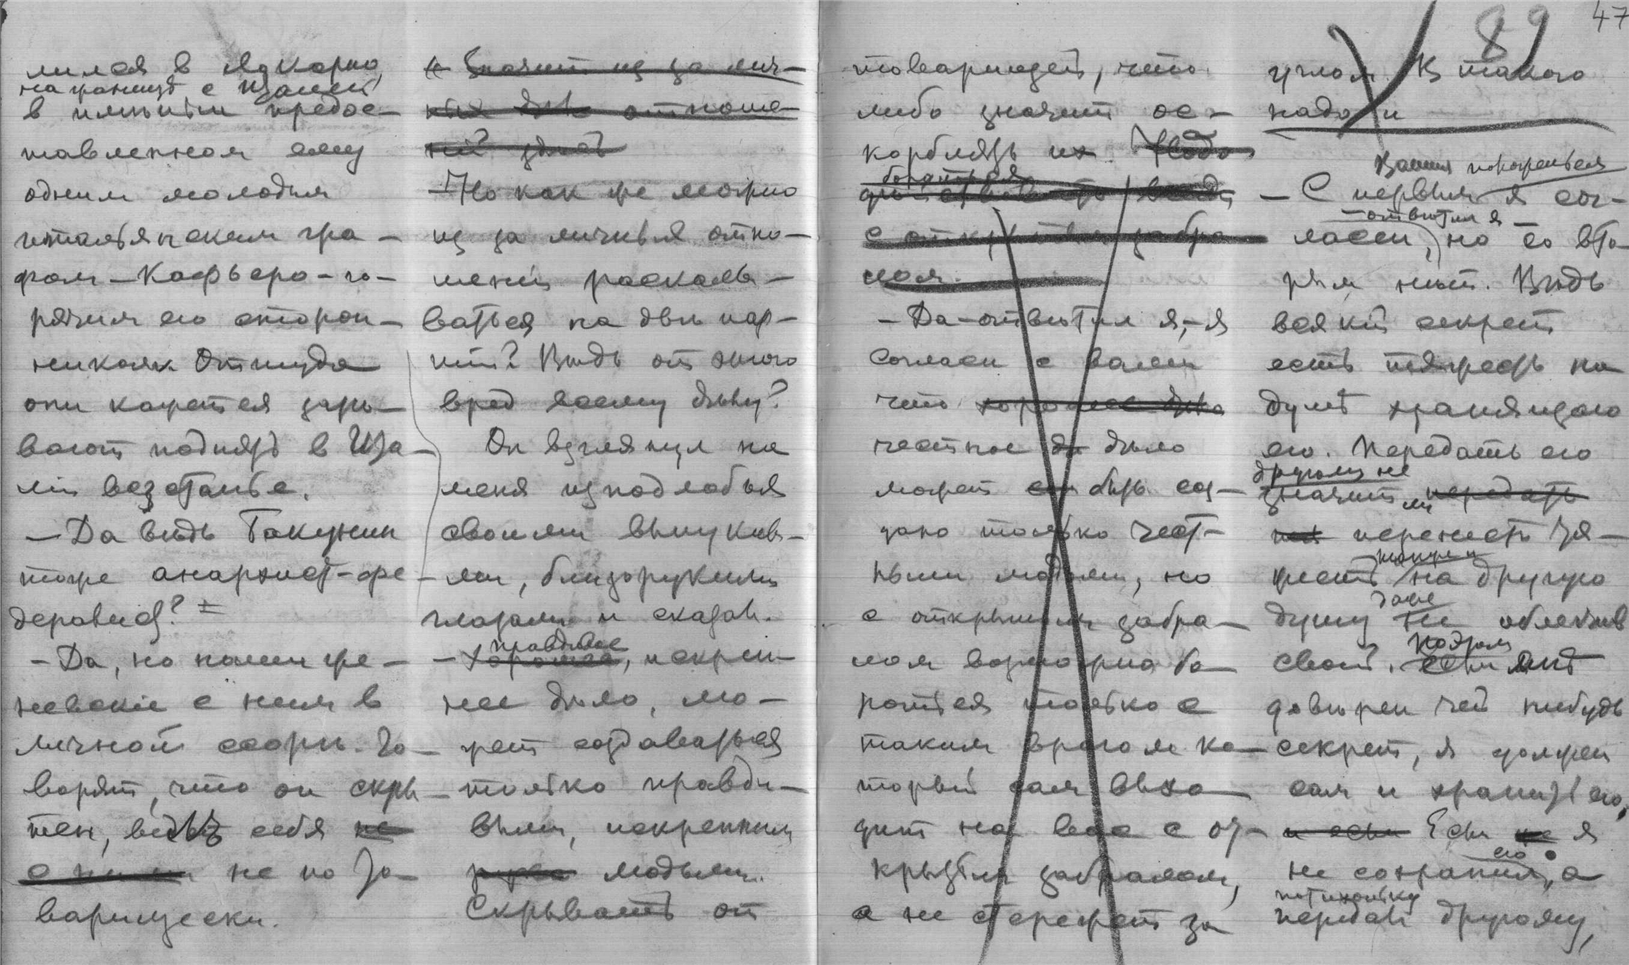 47
89
лился в Локарно,
на границе с Италией
в имении предос-
тавленном ему
одним молодым
итальянским гра-
фом - Кафьеро - го-
рячим его сторон-
ником. Оттуда
они кажется заты-
вают поднять в Ита-
лии возстанье.
— Да ведь Бакунин
тоже анархист-фе-
дералист? =
— Да, но наши же-
невские с ним в
личной ссоре. Го-
ворят, что он скры-
тен, ведет себя не
с ними не по То-
варищески.
« Значит из за лич-
ных отноше-
ний
— Но как же можно
из за личных отно-
шений расколы-
ваться на две пар-
тии? Ведь от этого
вред всему делу?
Он взглянул на
меня изподлобья
своими выпуклы-
ми, близорукими
глазами и сказал.
правдивое
— Хорошее, искрен-
нее дело, мо-
жет создаваться
только правди-
выми, искренними
людьми.
Скрывать от
товарищей, что
либо значит ос-
корблять их. Надо
бороться
с открытым забра-
лом.
— Да — ответил я, — я
согласен с вами
что хорошее дело
честное дело
может быть соз-
дано только чест-
ными людьми, но
с открытым забра-
лом возможно бо-
роться только с
таким врагом ко-
торый сам выхо-
дит на вас с от-
крытым забралом,
а не стережет за
углом. К такого
надо и
— С первым я сог-
— ответил я —
ласен, но со вто-
рым нет. Ведь
всякий секрет
есть тяжесть на
душе хранящаго
его. Передать его
другому не
значит ли передать
перенесть тя-
жесть на другую
даже
душу не облегчив
своей. Если мне
доверен чей нибудь
секрет, я должен
сам и хранить его,
и если Если не я
его
не сохранил, а
потихоньку
передал другому,